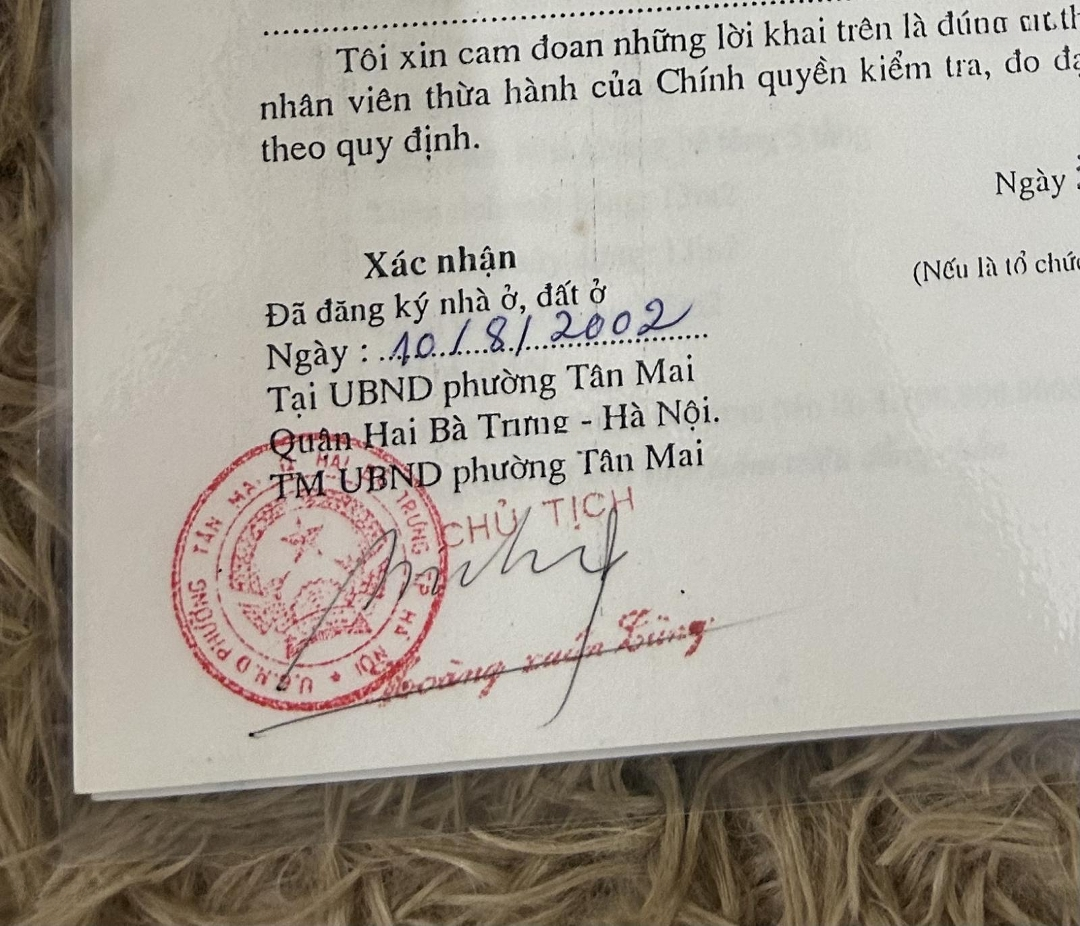 Tôi xin cam đoan những lời khai trên là đúng
nhân viên thừa hành của Chính quyền kiểm tra, đo
theo quy định.
Ngày
Xác nhận
(Nếu là tổ chức
Đã đăng ký nhà ở, đất ở
Ngày : 10/8/2002
Tại UBND phường Tân Mai
Quận Hai Bà Trưng - Hà Nội.
TM UBND phường Tân Mai
CHỦ TỊCH
U.B.N.D PHƯỜNG TÂN MAI HAI TRƯNG TP HÀ NỘI
Hoàng xuân Dũng